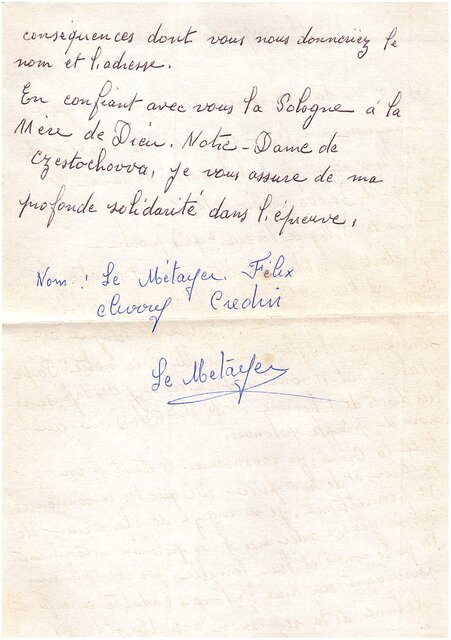 conséquences dont vous nous donneriez le
nom et l'adresse.
En confiant avec vous la Pologne à la
Mère de Dieu. Notre-Dame de
Czestochowa, je vous assure de ma
profonde solidarité dans l'épreuve.
Nom : Le Métayer Félix
Credin
Le Metayer